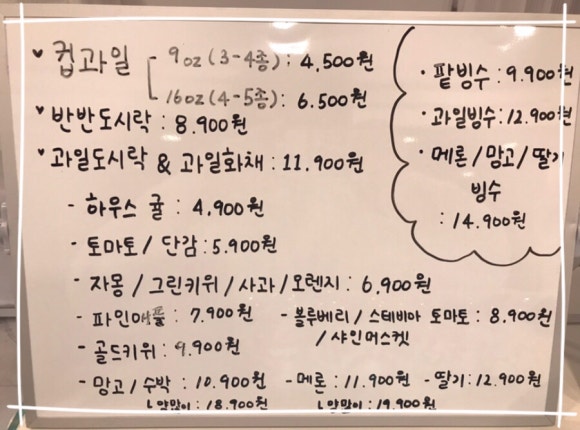 컵과일
9oz (3-4종) : 4,500원
16oz (4-5종) : 6.500원
반반도시락 : 8.900원
과일도시락 & 과일화채 : 11.900원
- 하우스 귤 : 4.900원
- 토마토 / 단감 : 5.900원
- 자몽 / 그린키위 / 사과 / 오렌지 : 6.900원
- 파인애플 : 7.900원
- 블루베리 / 스테비아 토마토 : 8.900원
/ 샤인머스켓
- 골드키위 : 9.900원
- 망고 / 수박 : 10.900원
- 메론 : 11.900원
- 딸기 : 12.900원
ㄴ 양많이 : 18.900원
ㄴ 양많이 : 19.900원
· 팥빙수 : 9.900원
· 과일빙수 : 12.900원
· 메론 / 망고 / 딸기
빙수
: 14.900원